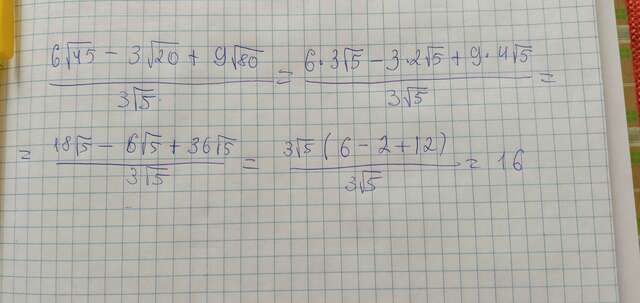 (6√45 − 3√20 + 9√80) / 3√5 = (6·3√5 − 3·2√5 + 9·4√5) / 3√5 =
= (18√5 − 6√5 + 36√5) / 3√5 = 3√5 (6 − 2 + 12) / 3√5 = 16